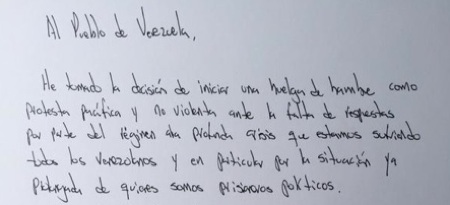 Al Pueblo de Venezuela,
He tomado la decisión de iniciar una huelga de hambre como
protesta pacífica y no violenta ante la falta de respuestas
por parte del régimen a la profunda crisis que estamos sufriendo
todos los venezolanos y en particular por la situación ya
prolongada de quienes somos prisioneros políticos.